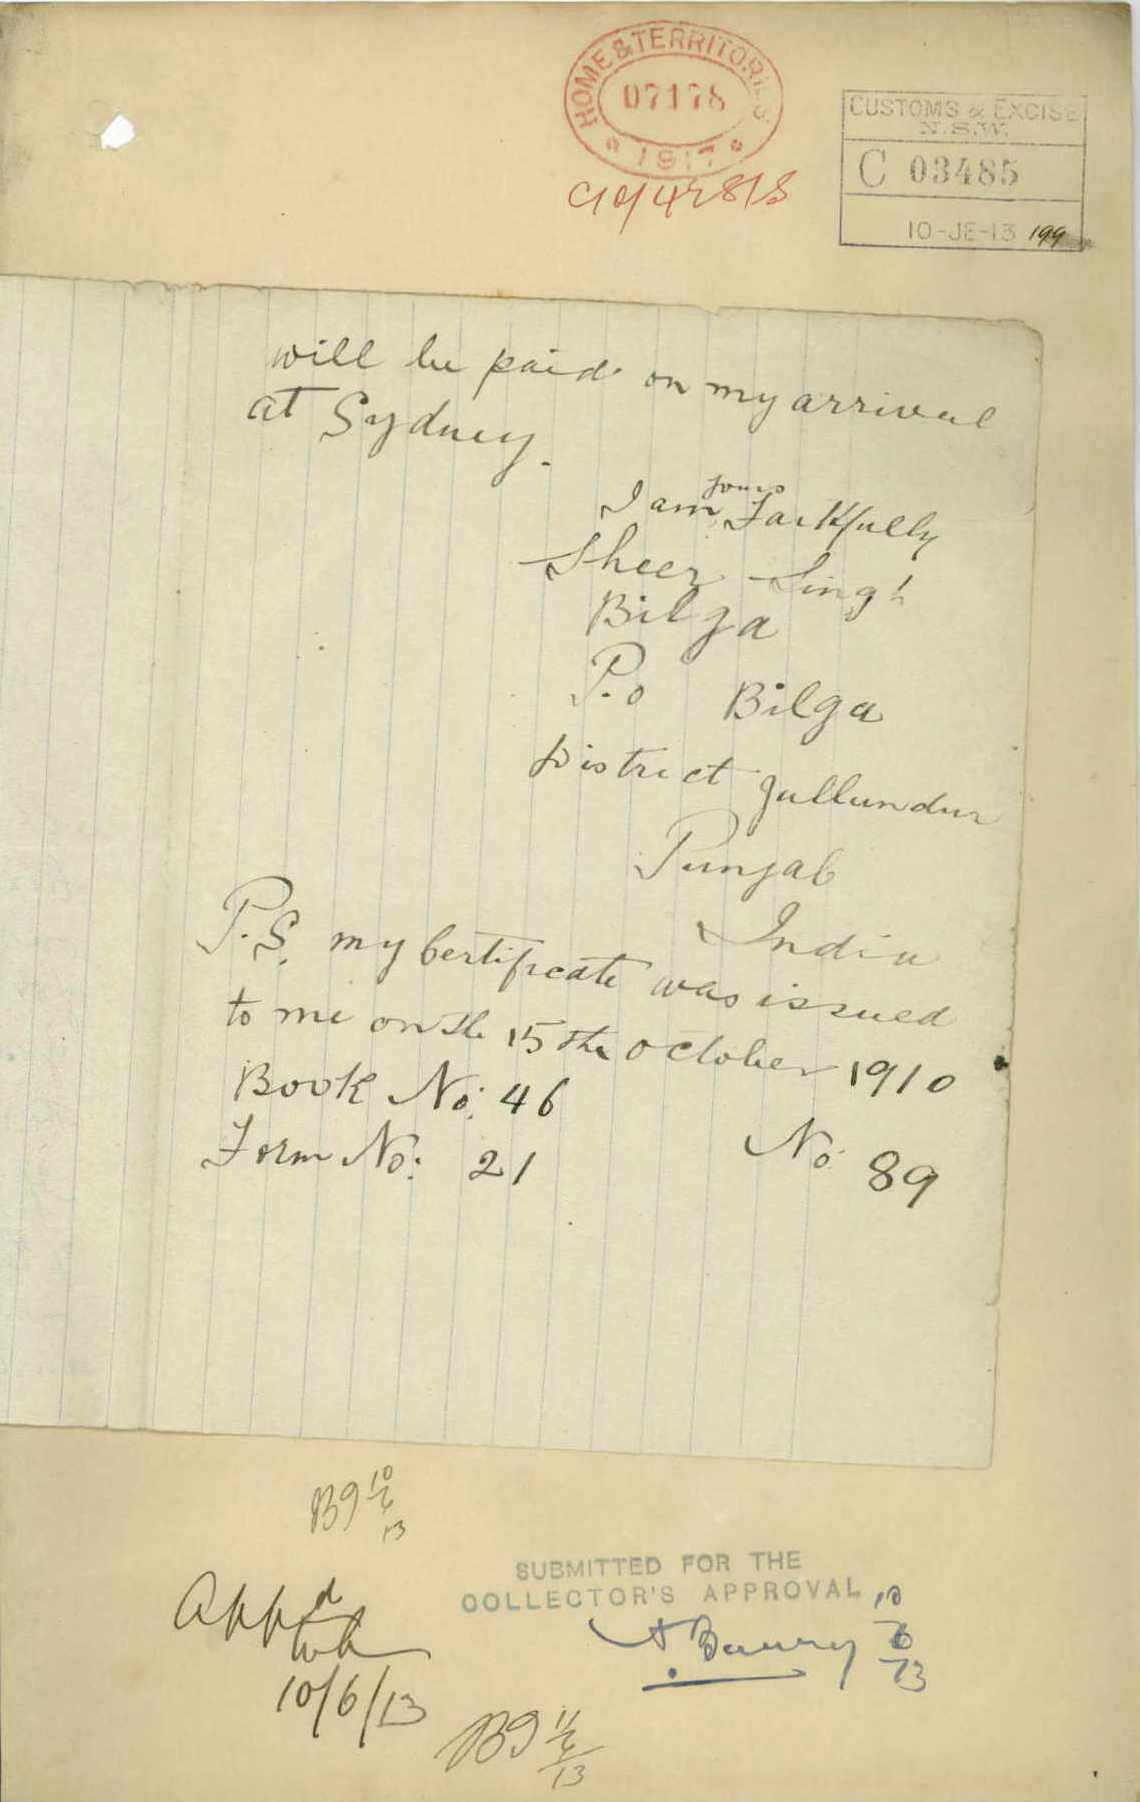 HOME & TERRITORIES
07178
1917
CUSTOMS & EXCISE
N.S.W.
C 03485
10-JE-13 199
will be paid on my arrival
at Sydney.
I am yours Faithfully
Sheer Singh
Bilga
P.o Bilga
District Jullundur
Punjab
India
P.S. my Certificate was issued
to me on the 15th October 1910
Book No: 46
Form No: 21 No 89
10
6
13
SUBMITTED FOR THE
COLLECTOR'S APPROVAL
10
6
13
Appd
10/6/13
11
6
13